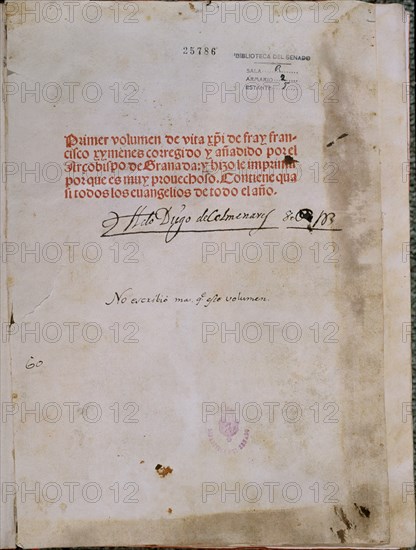 25786
BIBLIOTECA DEL SENADO
SALA R
ARMARIO 2
ESTANTE 5
Primer volumen de vita xp̄i de fray fran-
cisco xymenes corregido y añadido por el
Arçobispo de Granada: y hizo le imprimir
porque es muy prouechoso. Contiene qua
si todos los euangelios de todo el año.
de Colmenares
No escribió mas q̄ este volumen.
60
PHOTO 12